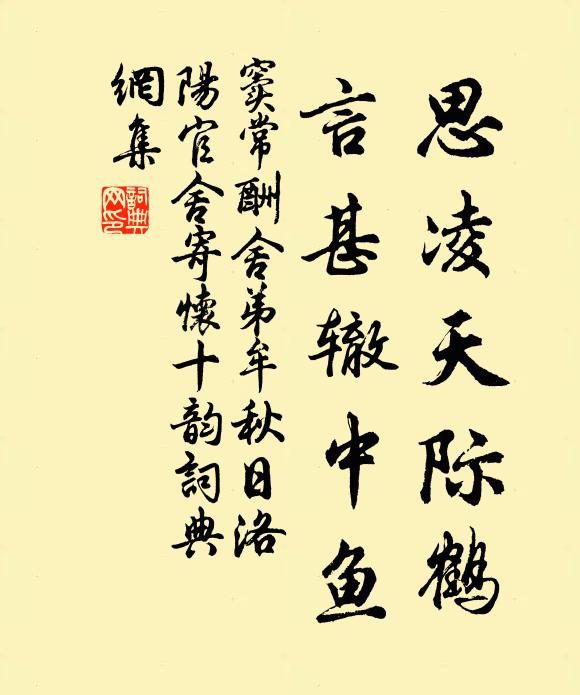 思凌天际鹤
言甚辙中鱼
窦常酬舍弟牟秋日洛
陽官舍寄懷十韵詞典
網集
詞典網印